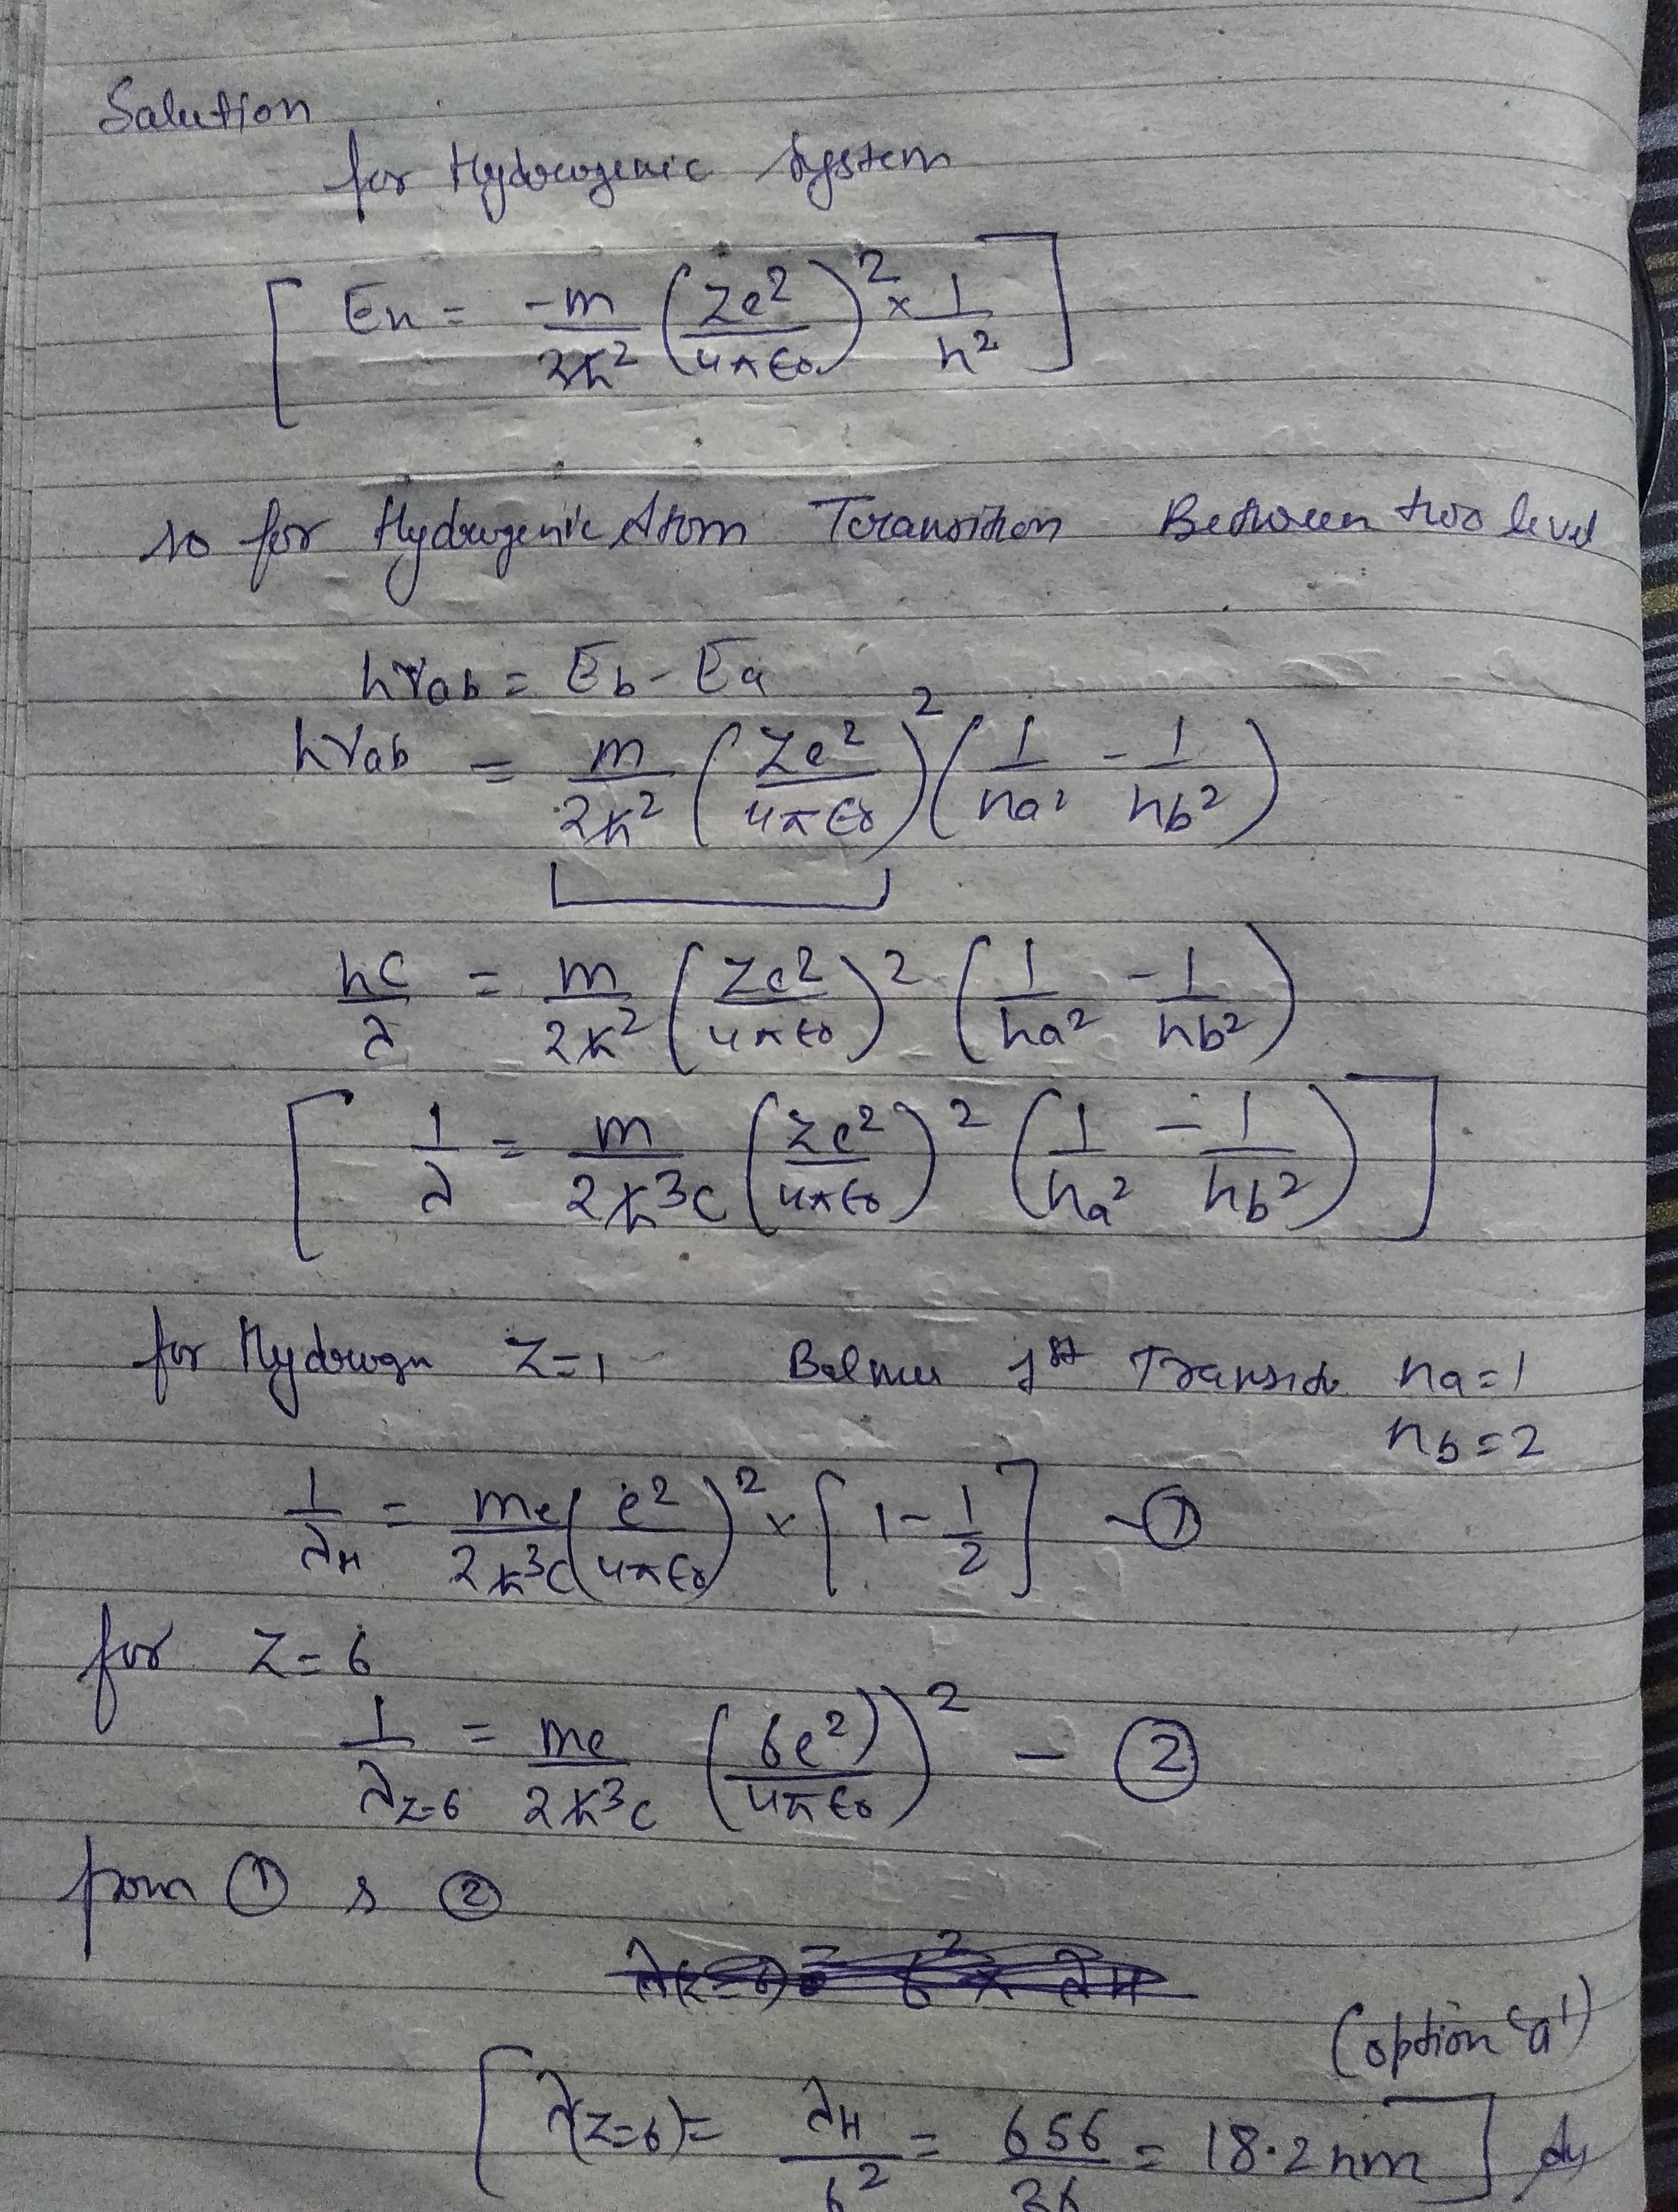 Salution
for Hydrogenic System
[ En = -m/2ħ² (Ze²/4πϵ₀)² × 1/n² ]
so for Hydrogenic Atom Transition Between two level
hνab = Eb - Ea
hνab = m/2ħ² (Ze²/4πϵ₀)² (1/na² - 1/nb²)
hc/λ = m/2ħ² (Ze²/4πϵ₀)² (1/na² - 1/nb²)
[ 1/λ = m/2ħ³c (Ze²/4πϵ₀)² (1/na² - 1/nb²) ]
for Hydrogn Z=1 Balmer 1st Transit na=1
nb=2
1/λH = me/2ħ³c (e²/4πϵ₀)² × [1 - 1/2] - ①
for Z=6
1/λz=6 = me/2ħ³c (6e²)/4πϵ₀)² - ②
from ① & ②
(option 'a')
[ λ(z=6) = λH/6² = 656/36 = 18.2 nm ]